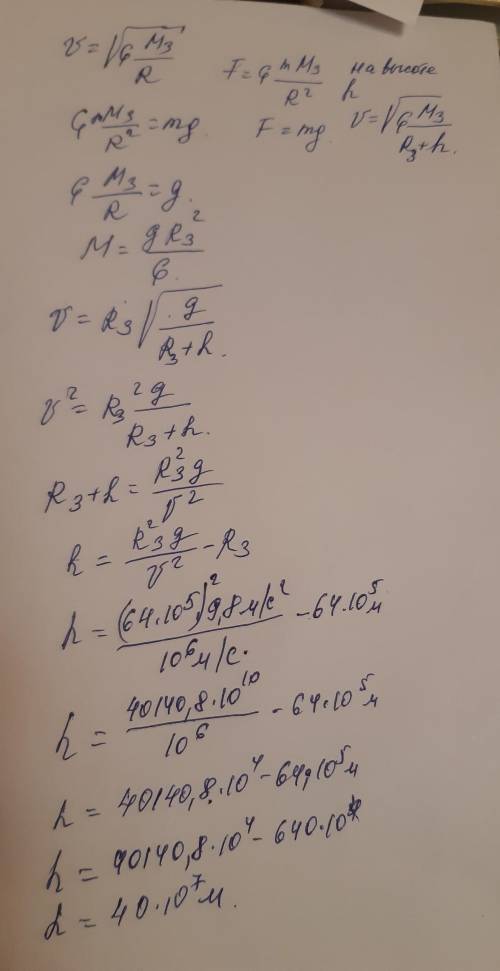 v = √(G M₃/R)
F = G mM₃/R² на высоте h
G mM₃/R² = mg. F = mg. v = √(G M₃/(R₃+h)).
G M₃/R = g.
M = gR₃²/G.
v = R₃ √(g/(R₃+h)).
v² = R₃² g/(R₃+h).
R₃+h = R₃²g/v²
h = R₃²g/v² - R₃
h = (64·10⁵)² 9,8 м/с²/10⁶ м/с. - 64·10⁵ м
h = 40140,8·10¹⁰/10⁶ - 64·10⁵ м
h = 40140,8·10⁴ - 64·10⁵ м
h = 40140,8·10⁴ - 640·10⁴
h = 40·10⁷ м.